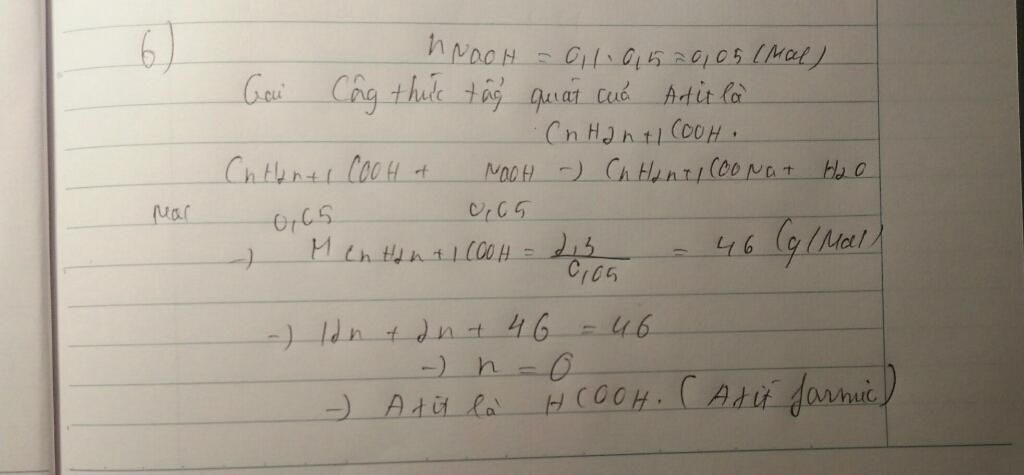 6)
nNaOH = 0,1. 0,5 = 0,05 (Mol)
Gọi Công thức tổng quát của Axit là
CnH2n+1COOH.
CnH2n+1COOH + NaOH -> CnH2n+1COONa + H2O
Mol 0,05 0,05
-> M CnH2n+1COOH = 2,3 / 0,05 = 46 (g/Mol)
-> 12n + 2n + 46 = 46
-> n = 0
-> Axit là HCOOH. (Axit formic)